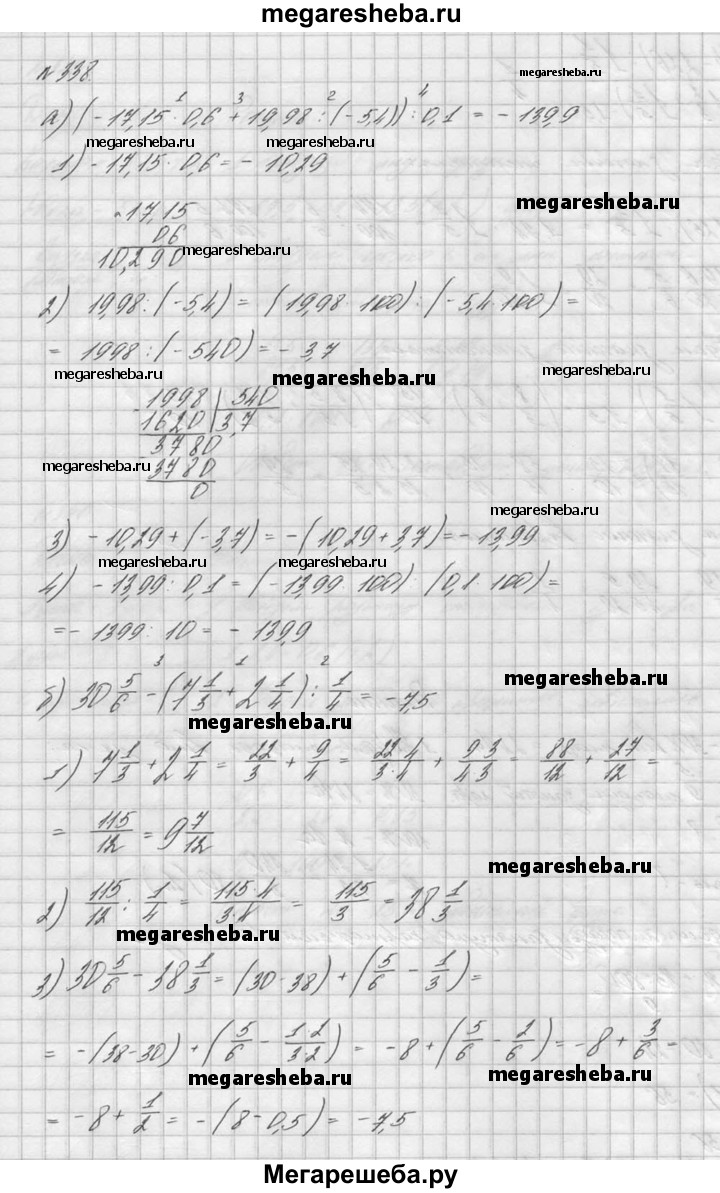 megaresheba.ru
№338.
megaresheba.ru
1 3 2 4
а) (-17,15 · 0,6 + 19,98 : (-5,4)) : 0,1 = -139,9
megaresheba.ru megaresheba.ru
1) -17,15 · 0,6 = -10,29
megaresheba.ru
17,15
0 6
10,290
megaresheba.ru
2) 19,98 : (-5,4) = (19,98 · 100) : (-5,4 · 100) =
= 1998 : (-540) = -3,7
megaresheba.ru megaresheba.ru megaresheba.ru
- 1998 | 540
1620 | 3,7
- 3780
megaresheba.ru
3780
0
megaresheba.ru
3) -10,29 + (-3,7) = -(10,29 + 3,7) = -13,99
megaresheba.ru megaresheba.ru
4) -13,99 : 0,1 = (-13,99 · 100) : (0,1 · 100) =
= -1399 : 10 = -139,9
3 1 2
б) 30 5/6 - (7 1/3 + 2 1/4) : 1/4 = -7,5
megaresheba.ru
megaresheba.ru
1) 7 1/3 + 2 1/4 = 22/3 + 9/4 = 22·4/3·4 + 9·3/4·3 = 88/12 + 27/12 =
= 115/12 = 9 7/12
megaresheba.ru
2) 115/12 : 1/4 = 115·4/3·4 = 115/3 = 38 1/3
megaresheba.ru
3) 30 5/6 - 38 1/3 = (30-38) + (5/6 - 1/3) =
= -(38-30) + (5/6 - 1·2/3·2) = -8 + (5/6 - 2/6) = -8 + 3/6 =
megaresheba.ru megaresheba.ru
= -8 + 1/2 = -(8-0,5) = -7,5
Мегарешеба.ру